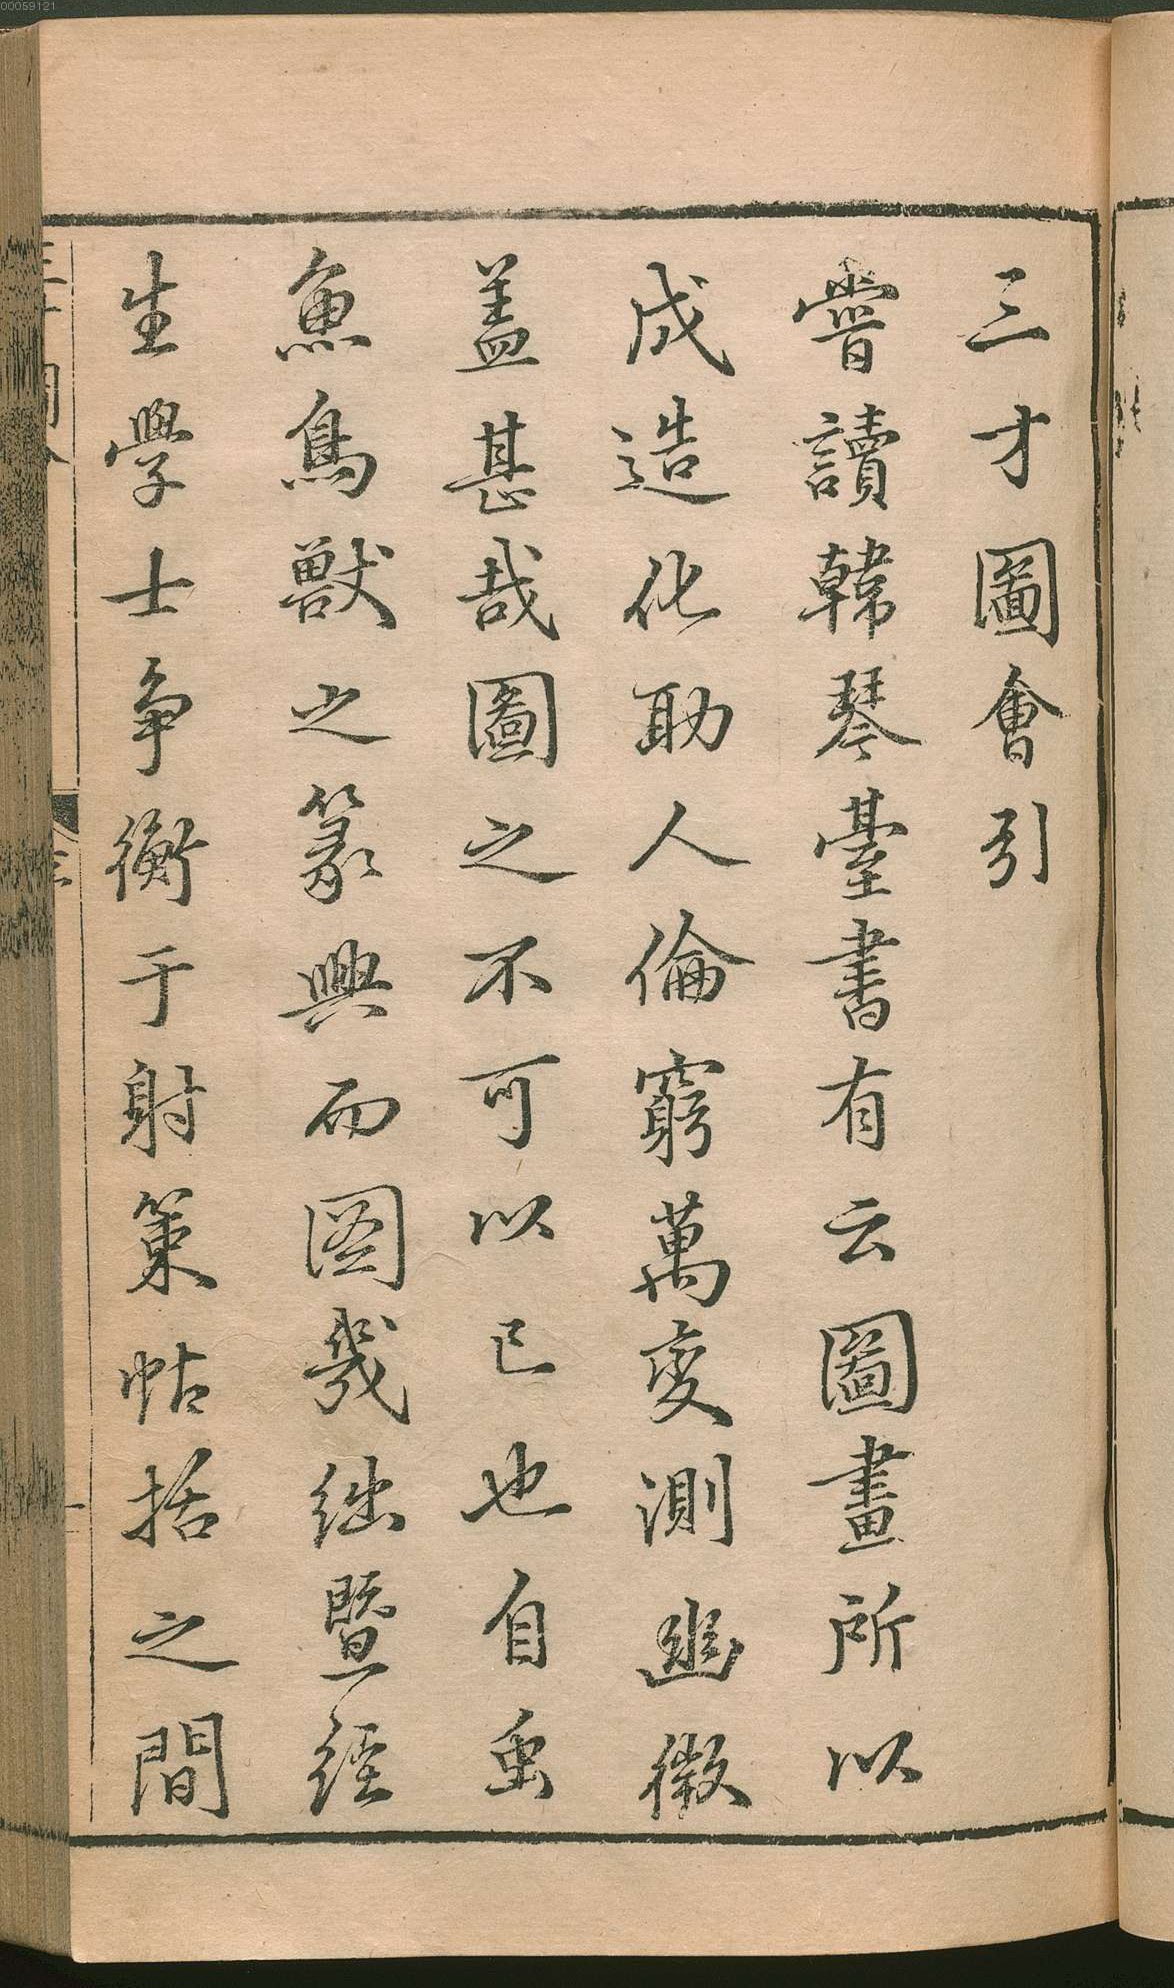 三才圖會引
甞讀韓琴臺書有云圖畫所以
成造化助人倫窮萬変測幽微
盖甚哉圖之不可以已也自虫
魚鳥獸之篆興而图幾绌曁経
生學士争衡于射策帖括之間
00059121